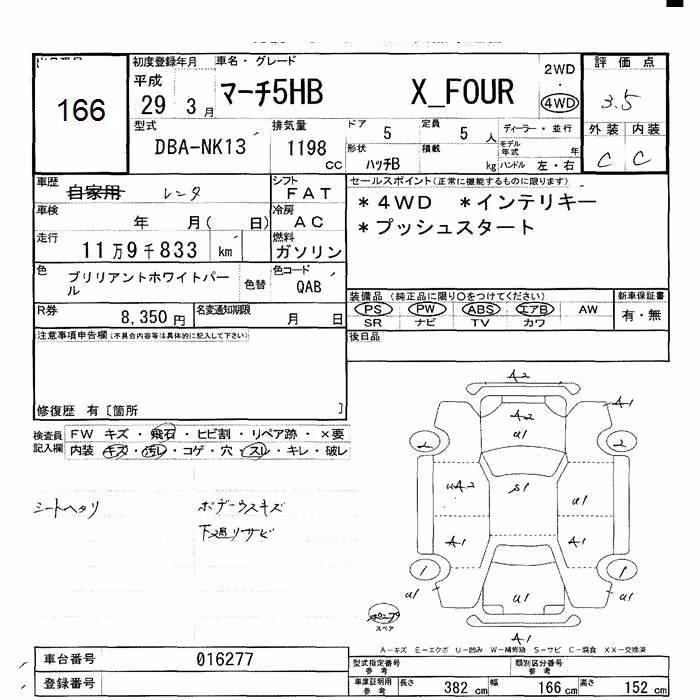 166
初度登録年月
平成
29 3月
車名・グレード
マーチ5HB X_FOUR
2WD
4WD
評価点
3.5
外装 内装
C C
型式
DBA-NK13
排気量
1198
cc
ドア
5
定員
5 人
形状
ハッチB
積載
kg
ディーラー・並行
モデル年式 年
ハンドル 左・右
車歴
自家用 レンタ
シフト
FAT
車検
年 月( 日)
冷房
AC
走行
11万9千833 km
燃料
ガソリン
色
ブリリアントホワイトパール
色替
色コード
QAB
R券
8,350円
名変通知期限
月 日
セールスポイント(正常に機能するものに限ります)
*4WD *インテリキー
*プッシュスタート
装備品 (純正品に限り○をつけてください)
PS PW ABS エアB AW
SR ナビ TV カワ
新車保証書
有・無
後日品
注意事項申告欄(不具合内容等は具体的に記入して下さい)
修復歴 有〔箇所 〕
検査員記入欄
FW キズ・飛石・ヒビ割・リペア跡・×要
内装 キズ・汚レ・コゲ・穴・スレ・キレ・破レ
シートヘタリ
ボデーウスキズ
下廻リサビ
A2
A2
U1
A1
2
2
UA2
S1
U1
A1
A1
1
1
U1
U1
U1
A1
スペア
A-キズ E-エクボ U-凹み W-補修跡 S-サビ C-腐食 XX-交換済
車台番号
016277
登録番号
型式指定番号
参考
類別区分番号
参考
車庫証明用
参考
長さ 382 cm
幅 166 cm
高さ 152 cm